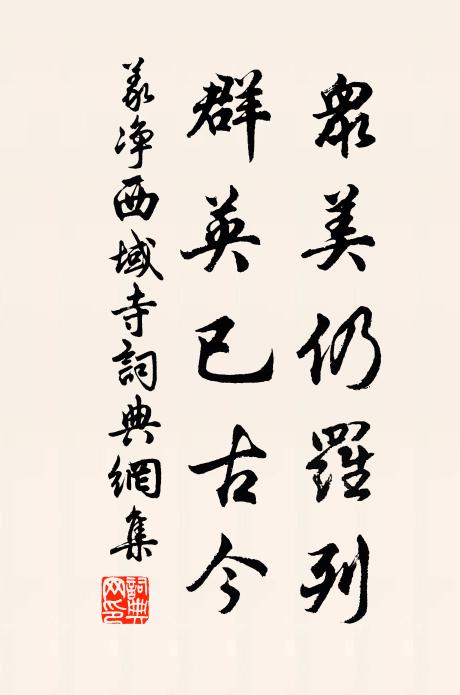 眾美仍羅列
群英已古今
義淨西域寺詞典網集
詞典网印